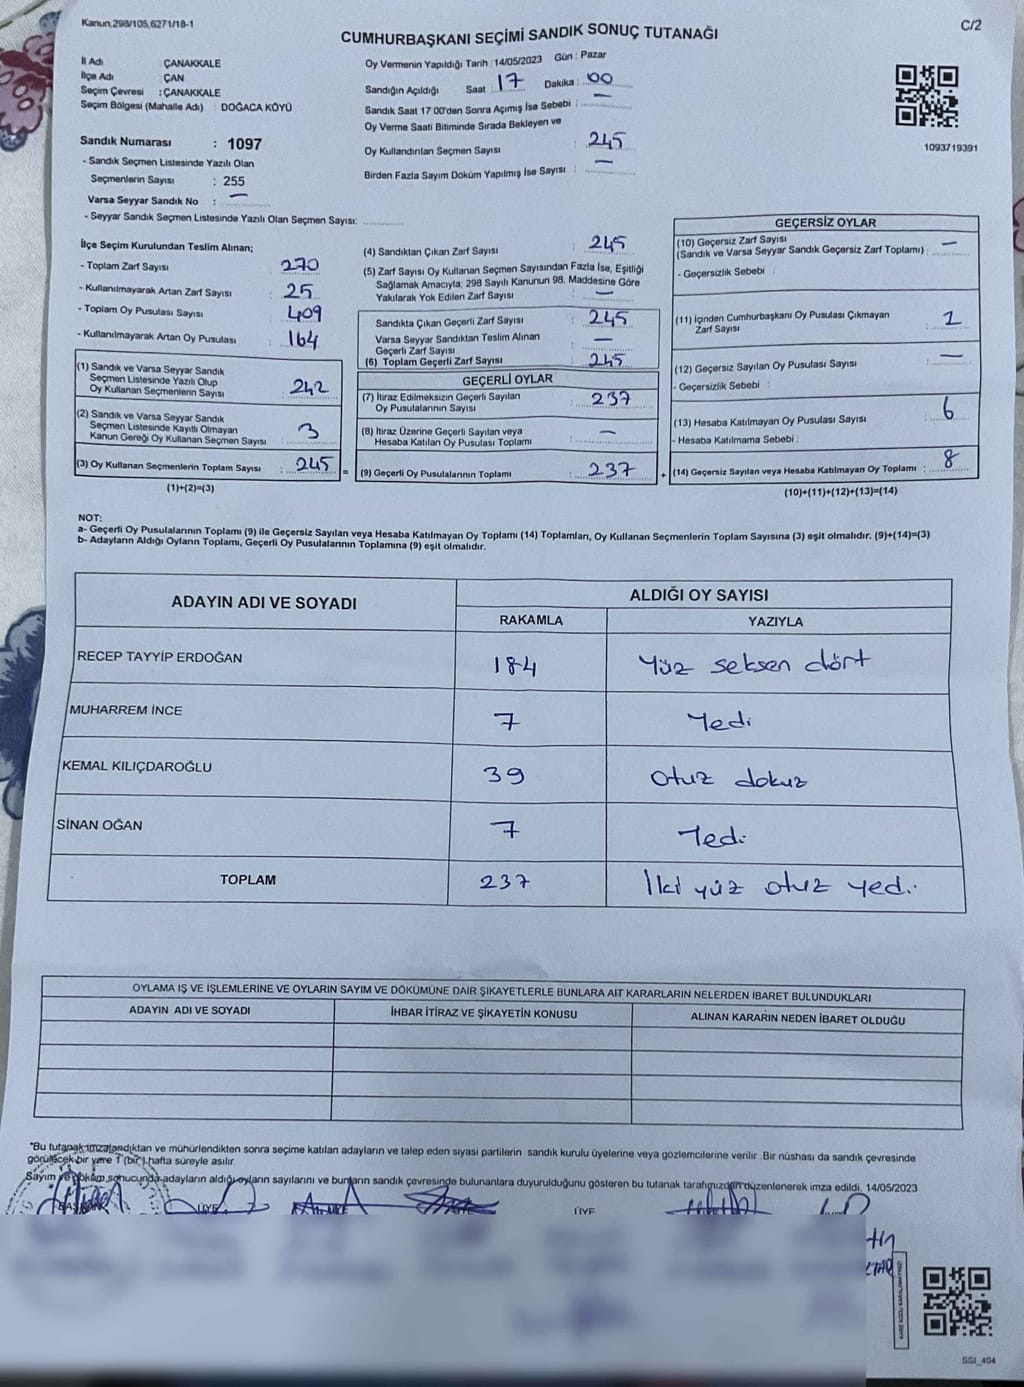 Kanun:298/105,6271/18-1
C/2
CUMHURBAŞKANI SEÇİMİ SANDIK SONUÇ TUTANAĞI
İl Adı : ÇANAKKALE
İlçe Adı : ÇAN
Seçim Çevresi : ÇANAKKALE
Seçim Bölgesi (Mahalle Adı) : DOĞACA KÖYÜ
Oy Vermenin Yapıldığı Tarih :14/05/2023 Gün : Pazar
Sandığın Açıldığı Saat : 17 Dakika : 00
Sandık Saat 17:00'den Sonra Açımış İse Sebebi : —
Oy Verme Saati Bitiminde Sırada Bekleyen ve
Oy Kullandırılan Seçmen Sayısı : 245
Birden Fazla Sayım Döküm Yapılmış İse Sayısı : —
1093719391
Sandık Numarası : 1097
- Sandık Seçmen Listesinde Yazılı Olan
Seçmenlerin Sayısı : 255
Varsa Seyyar Sandık No : —
- Seyyar Sandık Seçmen Listesinde Yazılı Olan Seçmen Sayısı:
İlçe Seçim Kurulundan Teslim Alınan;
- Toplam Zarf Sayısı : 270
- Kullanılmayarak Artan Zarf Sayısı : 25
- Toplam Oy Pusulası Sayısı : 409
- Kullanılmayarak Artan Oy Pusulası : 164
(1) Sandık ve Varsa Seyyar Sandık
Seçmen Listesinde Yazılı Olup
Oy Kullanan Seçmenlerin Sayısı : 242
(2) Sandık ve Varsa Seyyar Sandık
Seçmen Listesinde Kayıtlı Olmayan
Kanun Gereği Oy Kullanan Seçmen Sayısı : 3
(3) Oy Kullanan Seçmenlerin Toplam Sayısı : 245
(1)+(2)=(3)
=
(4) Sandıktan Çıkan Zarf Sayısı : 245
(5) Zarf Sayısı Oy Kullanan Seçmen Sayısından Fazla İse, Eşitliği
Sağlamak Amacıyla; 298 Sayılı Kanunun 98. Maddesine Göre
Yakılarak Yok Edilen Zarf Sayısı : —
Sandıkta Çıkan Geçerli Zarf Sayısı : 245
Varsa Seyyar Sandıktan Teslim Alınan
Geçerli Zarf Sayısı : —
(6) Toplam Geçerli Zarf Sayısı : 245
GEÇERLİ OYLAR
(7) İtiraz Edilmeksizin Geçerli Sayılan
Oy Pusulalarının Sayısı : 237
(8) İtiraz Üzerine Geçerli Sayılan veya
Hesaba Katılan Oy Pusulası Toplamı : —
(9) Geçerli Oy Pusulalarının Toplamı : 237
+
GEÇERSİZ OYLAR
(10) Geçersiz Zarf Sayısı
(Sandık ve Varsa Seyyar Sandık Geçersiz Zarf Toplamı) : —
- Geçersizlik Sebebi :
(11) İçinden Cumhurbaşkanı Oy Pusulası Çıkmayan
Zarf Sayısı : 2
(12) Geçersiz Sayılan Oy Pusulası Sayısı : —
- Geçersizlik Sebebi :
(13) Hesaba Katılmayan Oy Pusulası Sayısı : 6
- Hesaba Katılmama Sebebi :
(14) Geçersiz Sayılan veya Hesaba Katılmayan Oy Toplamı : 8
(10)+(11)+(12)+(13)=(14)
NOT:
a- Geçerli Oy Pusulalarının Toplamı (9) ile Geçersiz Sayılan veya Hesaba Katılmayan Oy Toplamı (14) Toplamları, Oy Kullanan Seçmenlerin Toplam Sayısına (3) eşit olmalıdır. (9)+(14)=(3)
b- Adayların Aldığı Oyların Toplamı, Geçerli Oy Pusulalarının Toplamına (9) eşit olmalıdır.
ADAYIN ADI VE SOYADI
ALDIĞI OY SAYISI
RAKAMLA YAZIYLA
RECEP TAYYİP ERDOĞAN 184 Yüz seksen dört
MUHARREM İNCE 7 Yedi
KEMAL KILIÇDAROĞLU 39 otuz dokuz
SİNAN OĞAN 7 Yedi
TOPLAM 237 İki yüz otuz yedi
OYLAMA İŞ VE İŞLEMLERİNE VE OYLARIN SAYIM VE DÖKÜMÜNE DAİR ŞİKAYETLERLE BUNLARA AİT KARARLARIN NELERDEN İBARET BULUNDUKLARI
ADAYIN ADI VE SOYADI İHBAR İTİRAZ VE ŞİKAYETİN KONUSU ALINAN KARARIN NEDEN İBARET OLDUĞU
*Bu tutanak imzalandıktan ve mühürlendikten sonra seçime katılan adayların ve talep eden siyasi partilerin sandık kurulu üyelerine veya gözlemcilerine verilir. Bir nüshası da sandık çevresinde
görülecek bir yere 1 (bir) hafta süreyle asılır.
Sayım ve döküm sonucunda adayların aldığı oyların sayılarını ve bunların sandık çevresinde bulunanlara duyurulduğunu gösteren bu tutanak tarafımızdan düzenlenerek imza edildi. 14/05/2023
BAŞKAN ÜYE ÜYE
KARE KODU KARALAMAYINIZ!
SSI_404